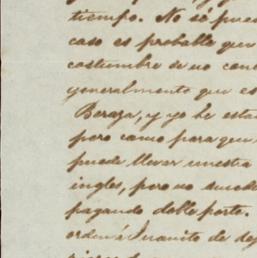 tiempo. No se pue
caso es probable que
costumbre de no con
generalmente que es
Beraza, y yo he esta
pero como para que
puede llevar nuestra
ingles, pero no suced
pagando doble porte.
orden á Juanito de de